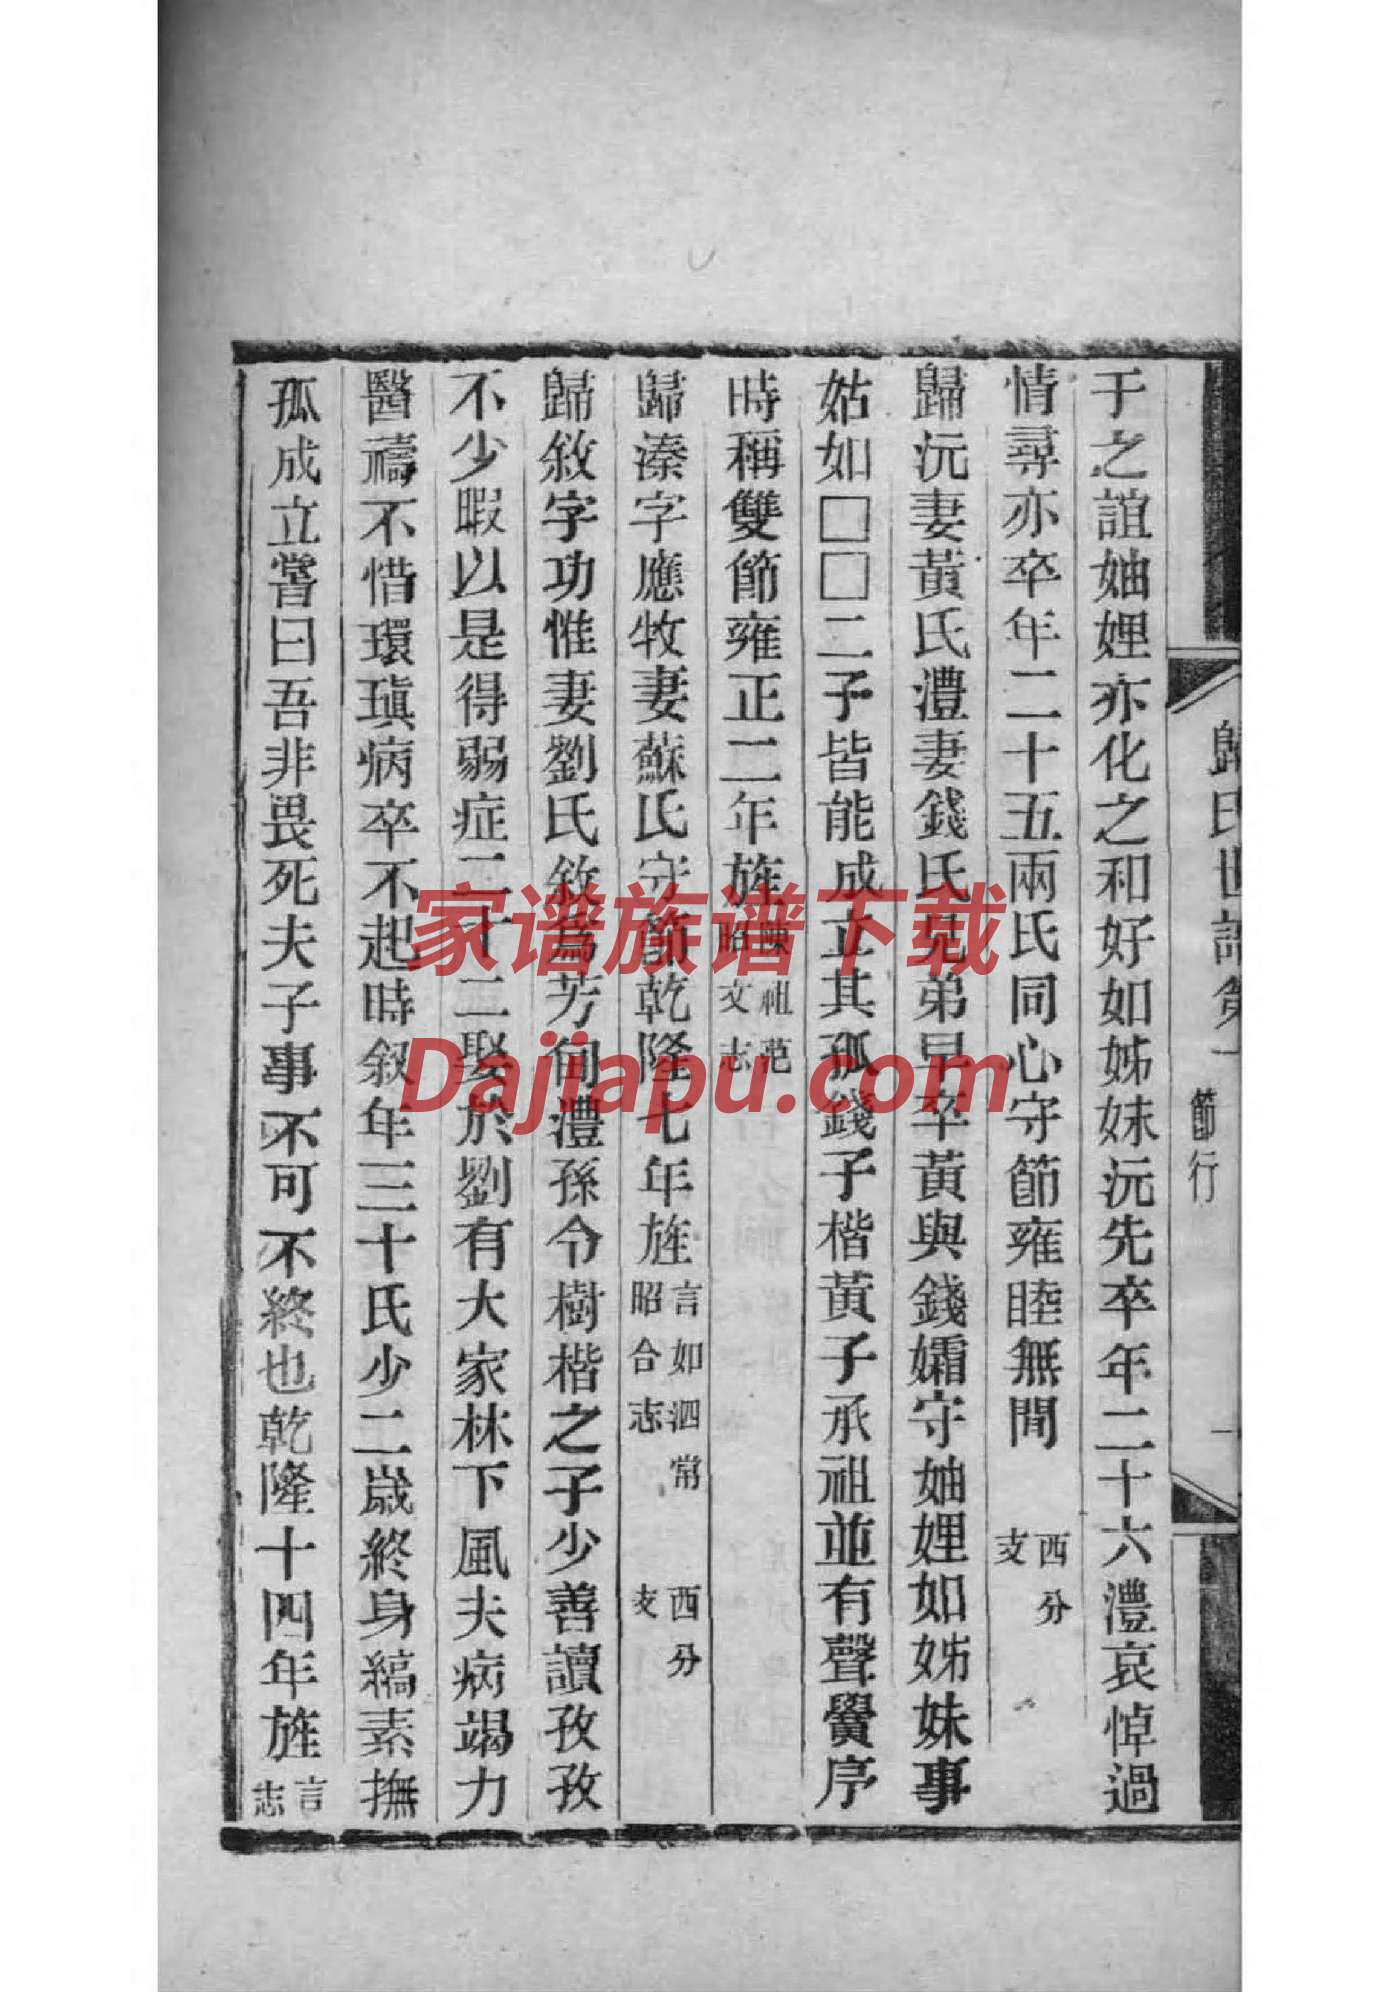 歸氏世譜第一 節行 一
于之誼妯娌亦化之和好如姊妹沅先卒年二十六澧哀悼過
情尋亦卒年二十五兩氏同心守節雍睦無閒 西分支
歸沅妻黃氏澧妻錢氏兄弟早卒黃與錢孀守妯娌如姊妹事
姑如□□二子皆能成立其孤錢子楷黃子承祖並有聲黌序
時稱雙節雍正二年旌 陳祖范昭文志
歸溱字應牧妻蘇氏守節乾隆七年旌 言如泗常昭合志 西分支
歸敘字功惟妻劉氏敘爲芳洵澧孫令樹楷之子少善讀孜孜
不少暇以是得弱症二十二娶於劉有大家林下風夫病竭力
醫禱不惜環瑱病卒不起時叙年三十氏少二歲終身縞素撫
孤成立嘗曰吾非畏死夫子事不可不終也乾隆十四年旌 言志
家谱族谱下载
Dajiapu.com